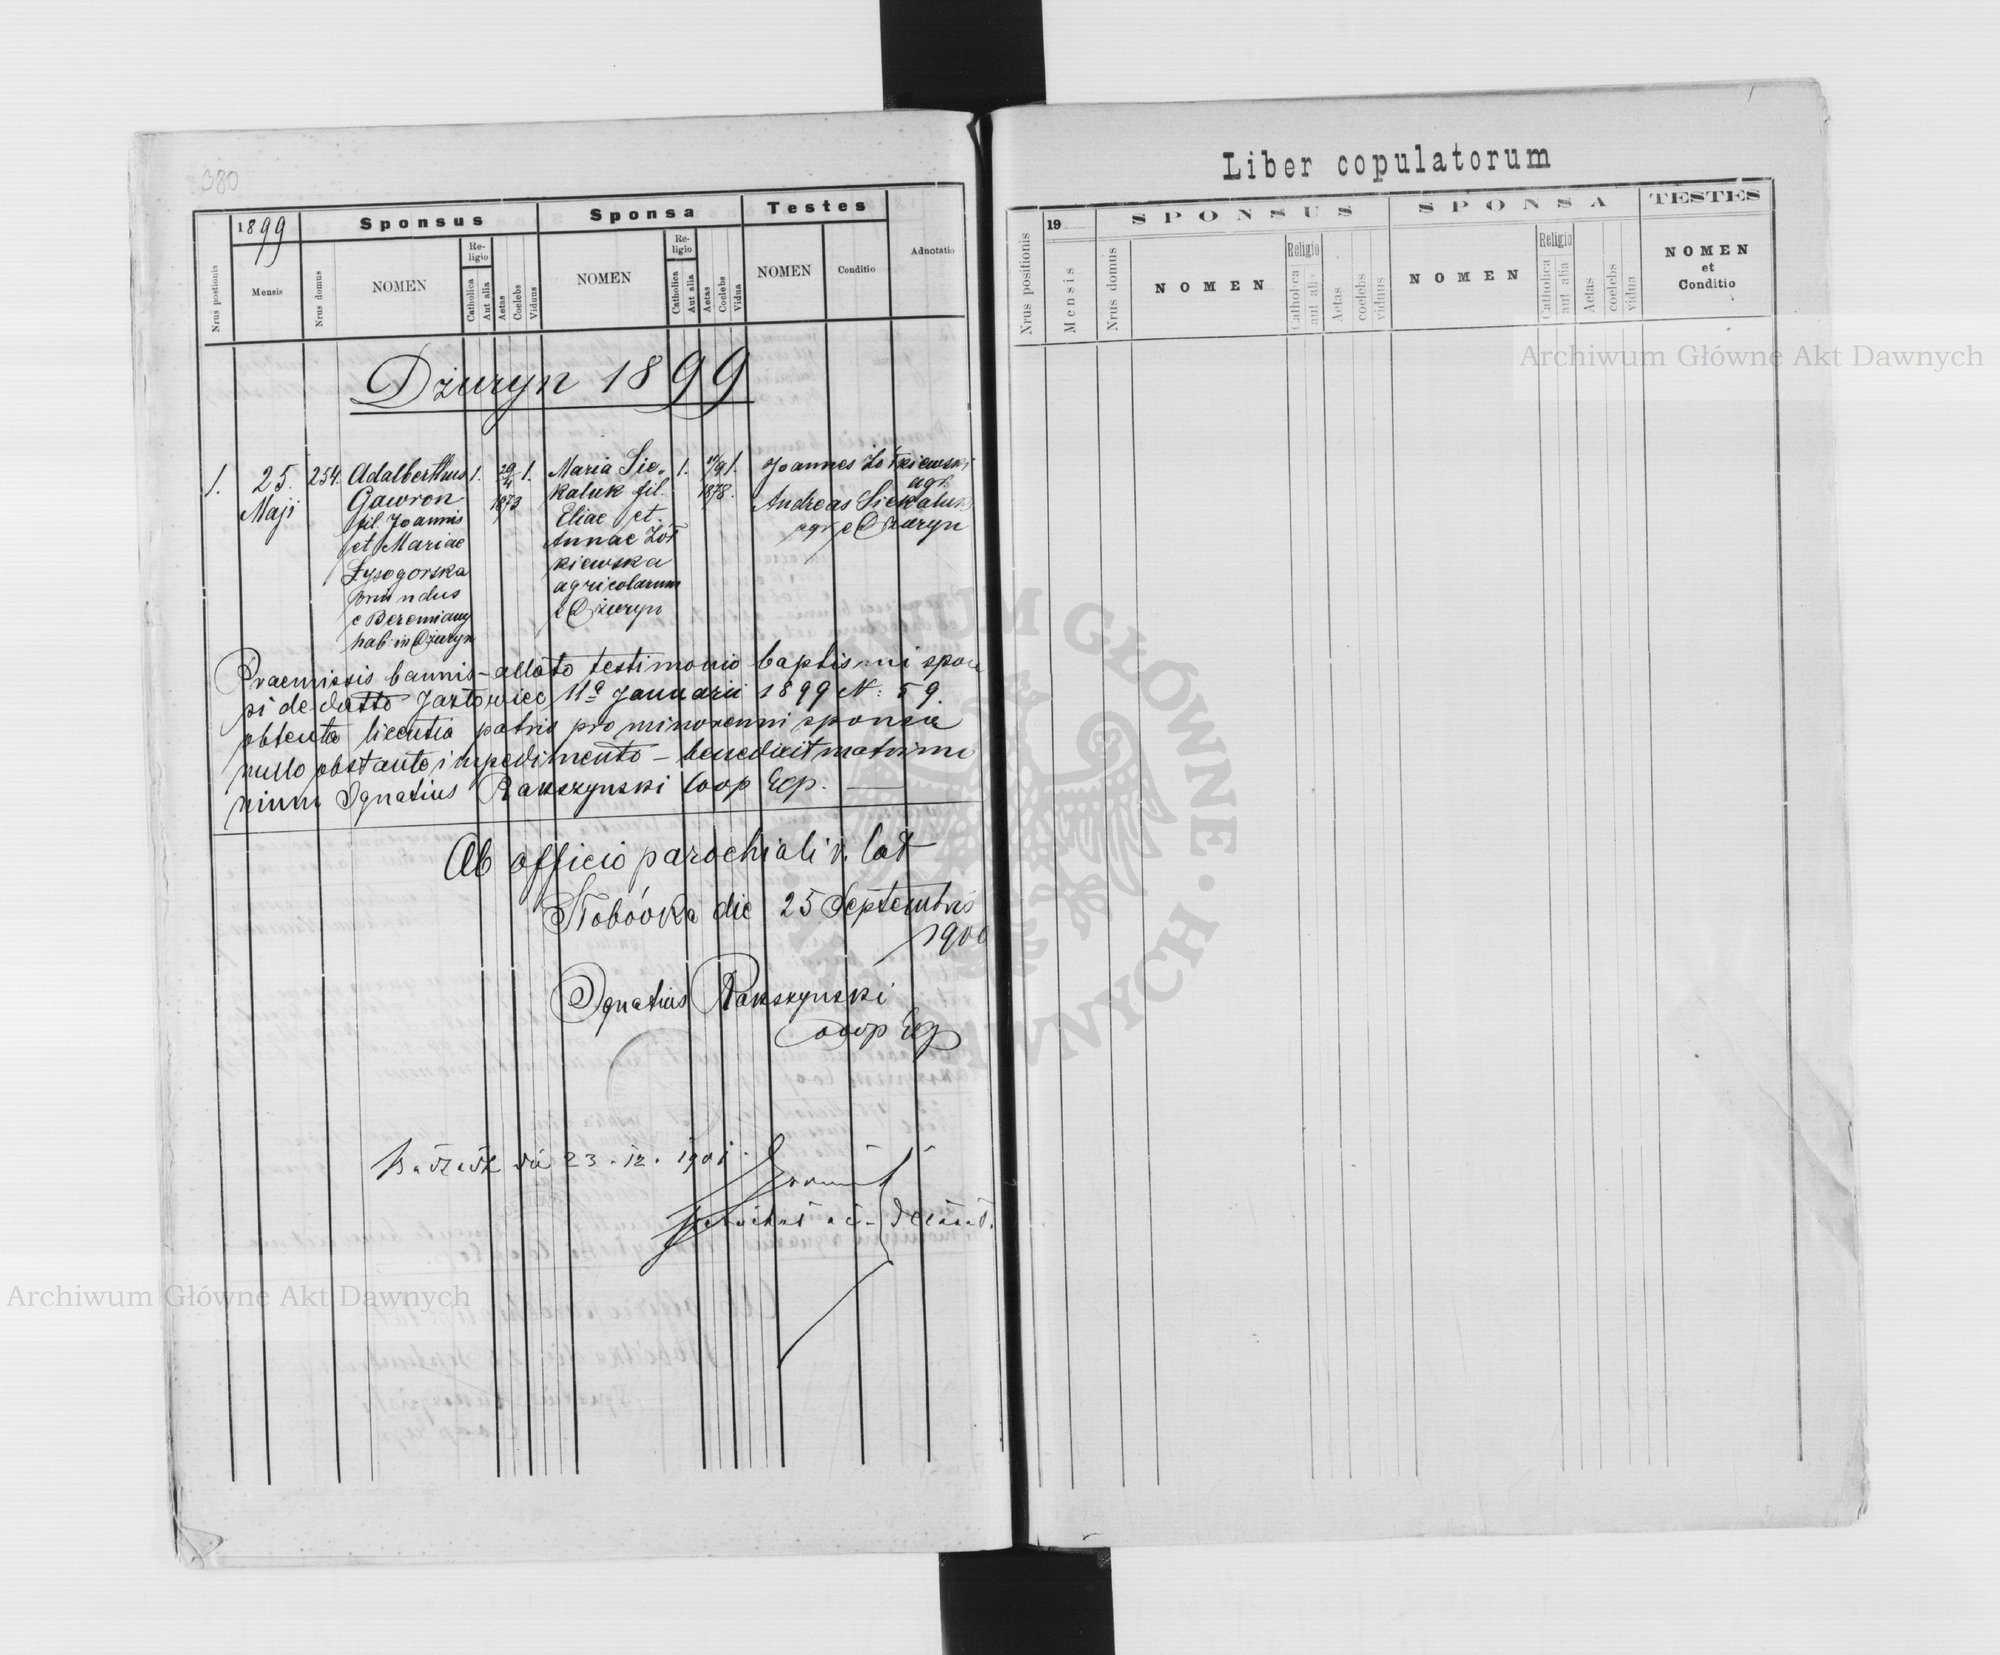 380
1899
Sponsus
Sponsa
Testes
Nrus positionis
Mensis
Nrus domus
NOMEN
Re-
ligio
Catholica
Aut alia
Aetas
Coelebs
Viduus
NOMEN
Re-
ligio
Catholica
Aut alia
Aetas
Coelebs
Vidua
NOMEN
Conditio
Adnotatio
Dżuryn 1899
1.
25.
Maji
254.
Adalberthus
Gawron
fil. Joannis
et Mariae
Łysogorska
oriundus
e Beremiany
hab. in Dżuryn
1.
29/4
1873
1.
Maria Sie-
kaluk fil.
Eliae et
Annae Żół
kiewska
agricolarum
e Dżuryn
1.
1878.
1.
Joannes Żółkiewski
agr.
Andreas Siekaluk
agr. e Dżuryn
Praemissis bannis - allato testimonio baptismi spon
si de datto Jazłowiec 11a Januarii 1899 N: 59.
obtenta licentia patris pro minorenni sponsa
nullo obstante impedimento - benedixit matrimo
nium Ignatius Rakszynski Coop Exp.
Ab officio parochiali r. lat
Słobódka die 25 Septembris
1900
Ignatius Rakszynski
Coop Exp
die 23. 12. 1901.
Liber copulatorum
19
SPONSUS
SPONSA
TESTES
Nrus positionis
Mensis
Nrus domus
NOMEN
Religio
Catholica
aut alia
Aetas
coelebs
viduus
NOMEN
Religio
Catholica
aut alia
Aetas
coelebs
vidua
NOMEN
et
Conditio
Archiwum Główne Akt Dawnych
Archiwum Główne Akt Dawnych